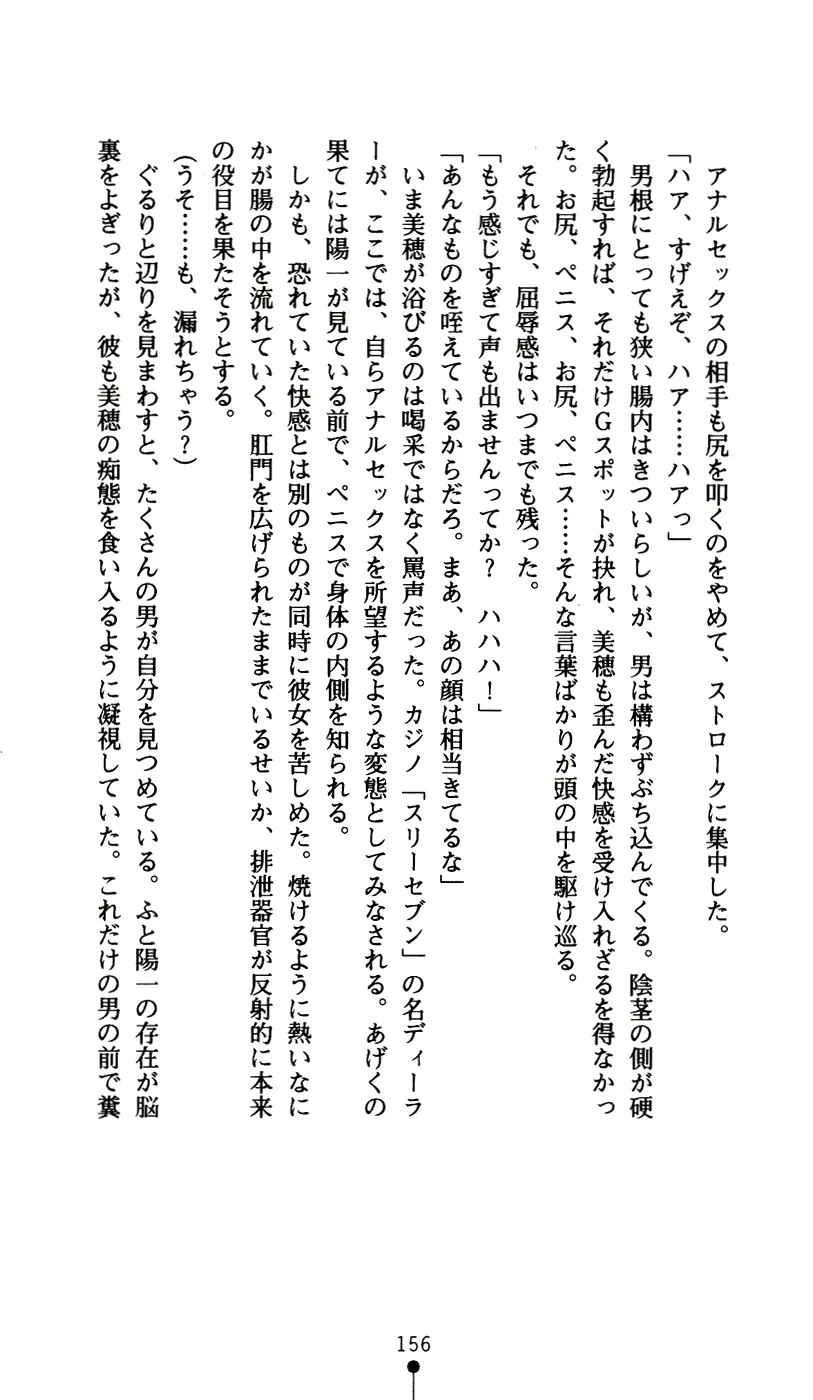 アナルセックスの相手も尻を叩くのをやめて、ストロークに集中した。
「ハア、すげえぞ、ハア……ハアっ」
男根にとっても狭い腸内はきついらしいが、男は構わずぶち込んでくる。陰茎の側が硬
く勃起すれば、それだけGスポットが抉れ、美穂も歪んだ快感を受け入れざるを得なかっ
た。お尻、ペニス、お尻、ペニス……そんな言葉ばかりが頭の中を駆け巡る。
それでも、屈辱感はいつまでも残った。
「もう感じすぎて声も出ませんってか？　ハハハ！」
「あんなものを咥えているからだろ。まあ、あの顔は相当きてるな」
いま美穂が浴びるのは喝采ではなく罵声だった。カジノ「スリーセブン」の名ディーラ
ーが、ここでは、自らアナルセックスを所望するような変態としてみなされる。あげくの
果てには陽一が見ている前で、ペニスで身体の内側を知られる。
しかも、恐れていた快感とは別のものが同時に彼女を苦しめた。焼けるように熱いなに
かが腸の中を流れていく。肛門を広げられたままでいるせいか、排泄器官が反射的に本来
の役目を果たそうとする。
(うそ……も、漏れちゃう？)
ぐるりと辺りを見まわすと、たくさんの男が自分を見つめている。ふと陽一の存在が脳
裏をよぎったが、彼も美穂の痴態を食い入るように凝視していた。これだけの男の前で糞
156